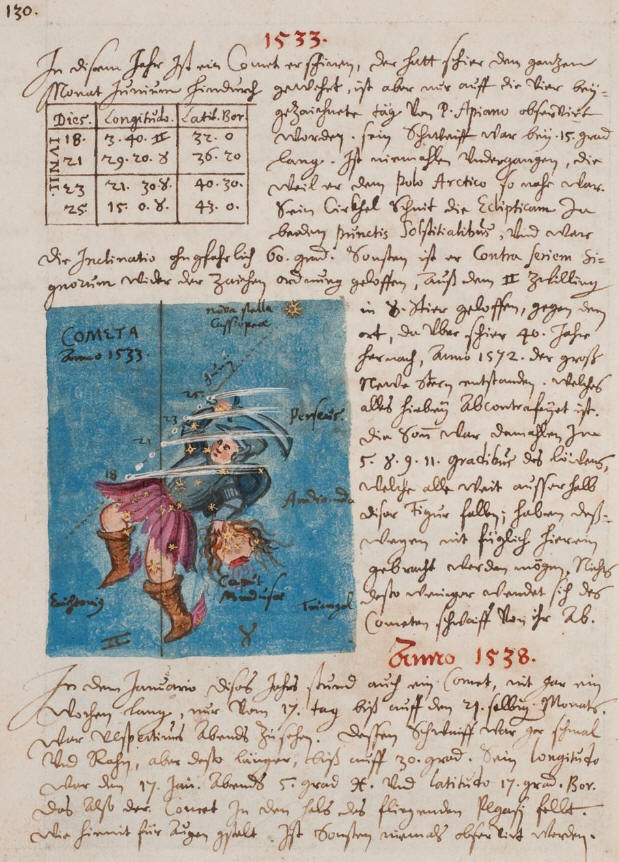 130.
1533.
In disem Jahr Ist ein Comet erschinen, der hatt schier den gantzen
Monat Junium hindurch gewehrt, ist aber nur auff die vier bey-
gezaichnete täg von P. Apiano observirt
worden. sein Schwaiff war bey .15. grad
lang. Ist niemahlen Undergangen, die
weil er dem Polo Arctico so nahe war.
Sein Cirkhel schnit die Eclipticam In
beeden punctis Solstitialibus, Und war
Dies. Longitudo. Latit. Bor.
IVNII.
18. 3. 40. ♊ 32. 0
21 29. 20. ♉ 36. 20
23 21. 30 ♉. 40. 30.
25 15. 0. ♉. 43. 0.
die Inclinatio ohngefahrlich 60. grad. Sonsten ist er Contra seriem Si-
gnorum wider der Zaichen ordnung geloffen, auß dem ♊ Zwilling
in ♉. Stier geloffen, gegen dem
ort, da über schier 40. Jahr
hernach, Anno 1572. der groß
Newe stern entstanden. welches
alles hiebey Abcontrafeyet ist.
die Son war damahlen Im
5. 8. 9. 11. gradibus des löwens,
welche alle weit ausserhalb
diser Figur fallen; haben deß-
wegen nit füglich hierein
gebracht werden mögen. Nichts
desto weniger wendet sich des
Cometen schwaiff von ihr Ab.
COMETA
Anno 1533.
nova stella
Cassiopeae
Junij
25
23
21
18
Perseus
Andromeda
Caput
Medusae
Erichtonig
Triangel
♊
♉
Anno 1538.
In dem Januario dises Jahrs stund auch ein Comet, nit gar ein
wochen lang, nur vom 17. tag biß auff den 21. selbigs Monats.
war Vespertinus Abends zu sehen. dessen Schwaiff war gar schmal
Und Rahn, aber desto länger, biß auff 30. grad. Sein longitudo
war den 17. Jan. Abends 5. grad ♓. Und latitudo 17. grad. Bor.
das also der Comet In den hals des fliegenden Pegasi fellt.
wie hiemit für Augen gestelt. Ist Sonsten niemals observirt worden.